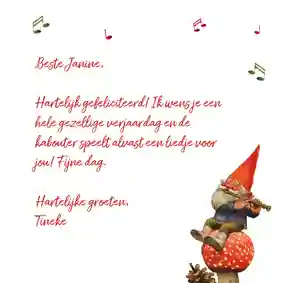 Beste Janine,
Hartelijk gefeliciteerd! Ik wens je een
hele gezellige verjaardag en de
kabouter speelt alvast een liedje voor
jou! Fijne dag.
Hartelijke groeten,
Tineke